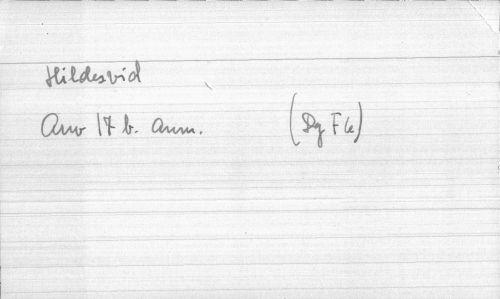 Hildesvid
Anv 17 b. anm. (Dg Fle)